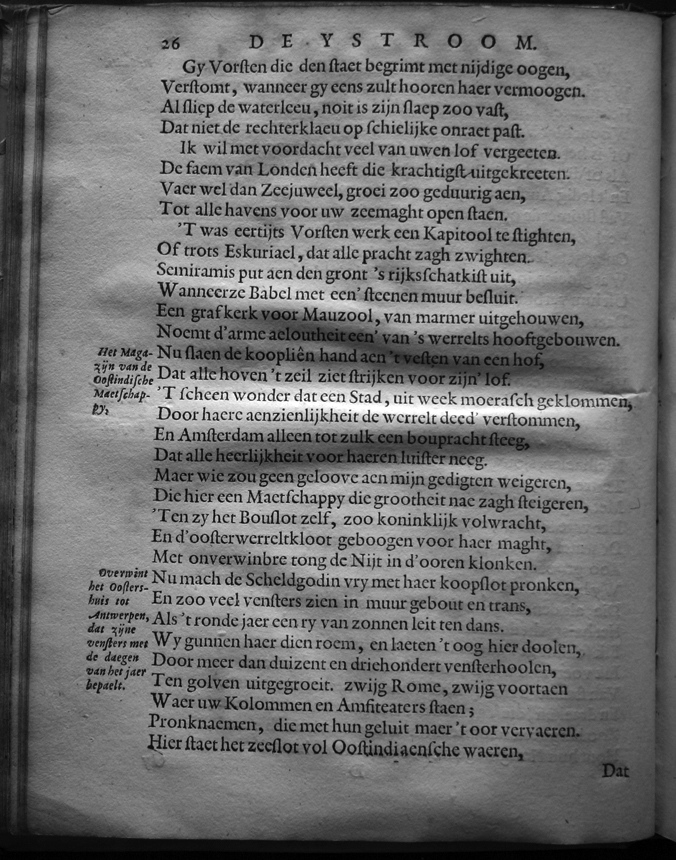 26 DE YSTROOM.
Gy Vorſten die den ſtaet begrimt met nijdige oogen,
Verſtomt, wanneer gy eens zult hooren haer vermoogen.
Al ſliep de waterleeu, noit is zijn ſlaep zoo vaſt,
Dat niet de rechterklaeu op ſchielijke onraet paſt.
Ik wil met voordacht veel van uwen lof vergeeten.
De faem van Londen heeft die krachtigſt uitgekreeten.
Vaer wel dan Zeejuweel, groei zoo geduurig aen,
Tot alle havens voor uw zeemaght open ſtaen.
'T was eertijts Vorſten werk een Kapitool te ſtighten,
Of trots Eskuriael, dat alle pracht zagh zwighten.
Semiramis put aen den gront 's rijksſchatkiſt uit,
Wanneerze Babel met een' ſteenen muur beſluit.
Een grafkerk voor Mauzool, van marmer uitgehouwen,
Noemt d'arme aeloutheit een' van 's werrelts hooftgebouwen.
Het Maga-
zijn van de
Ooſtindiſche
Maetſchap-
py,
Nu ſlaen de koopliên hand aen 't veſten van een hof,
Dat alle hoven 't zeil ziet ſtrijken voor zijn' lof.
'T ſcheen wonder dat een Stad, uit week moeraſch geklommen,
Door haere aenzienlijkheit de werrelt deed' verſtommen,
En Amſterdam alleen tot zulk een boupracht ſteeg,
Dat alle heerlijkheit voor haeren luiſter neeg.
Maer wie zou geen geloove aen mijn gedigten weigeren,
Die hier een Maetſchappy die grootheit nae zagh ſteigeren,
'Ten zy het Bouſlot zelf, zoo koninklijk volwracht,
En d'ooſterwerreltkloot geboogen voor haer maght,
Met onverwinbre tong de Nijt in d'ooren klonken.
Overwint
het Ooſters-
huis tot
Antwerpen,
dat zijne
venſters met
de daegen
van het jaer
bepaelt.
Nu mach de Scheldgodin vry met haer koopſlot pronken,
En zoo veel venſters zien in muur gebout en trans,
Als 't ronde jaer een ry van zonnen leit ten dans.
Wy gunnen haer dien roem, en laeten 't oog hier doolen,
Door meer dan duizent en driehondert venſterhoolen,
Ten golven uitgegroeit. zwijg Rome, zwijg voortaen
Waer uw Kolommen en Amfiteaters ſtaen;
Pronknaemen, die met hun geluit maer 't oor vervaeren.
Hier ſtaet het zeeſlot vol Ooſtindiaenſche waeren,
Dat